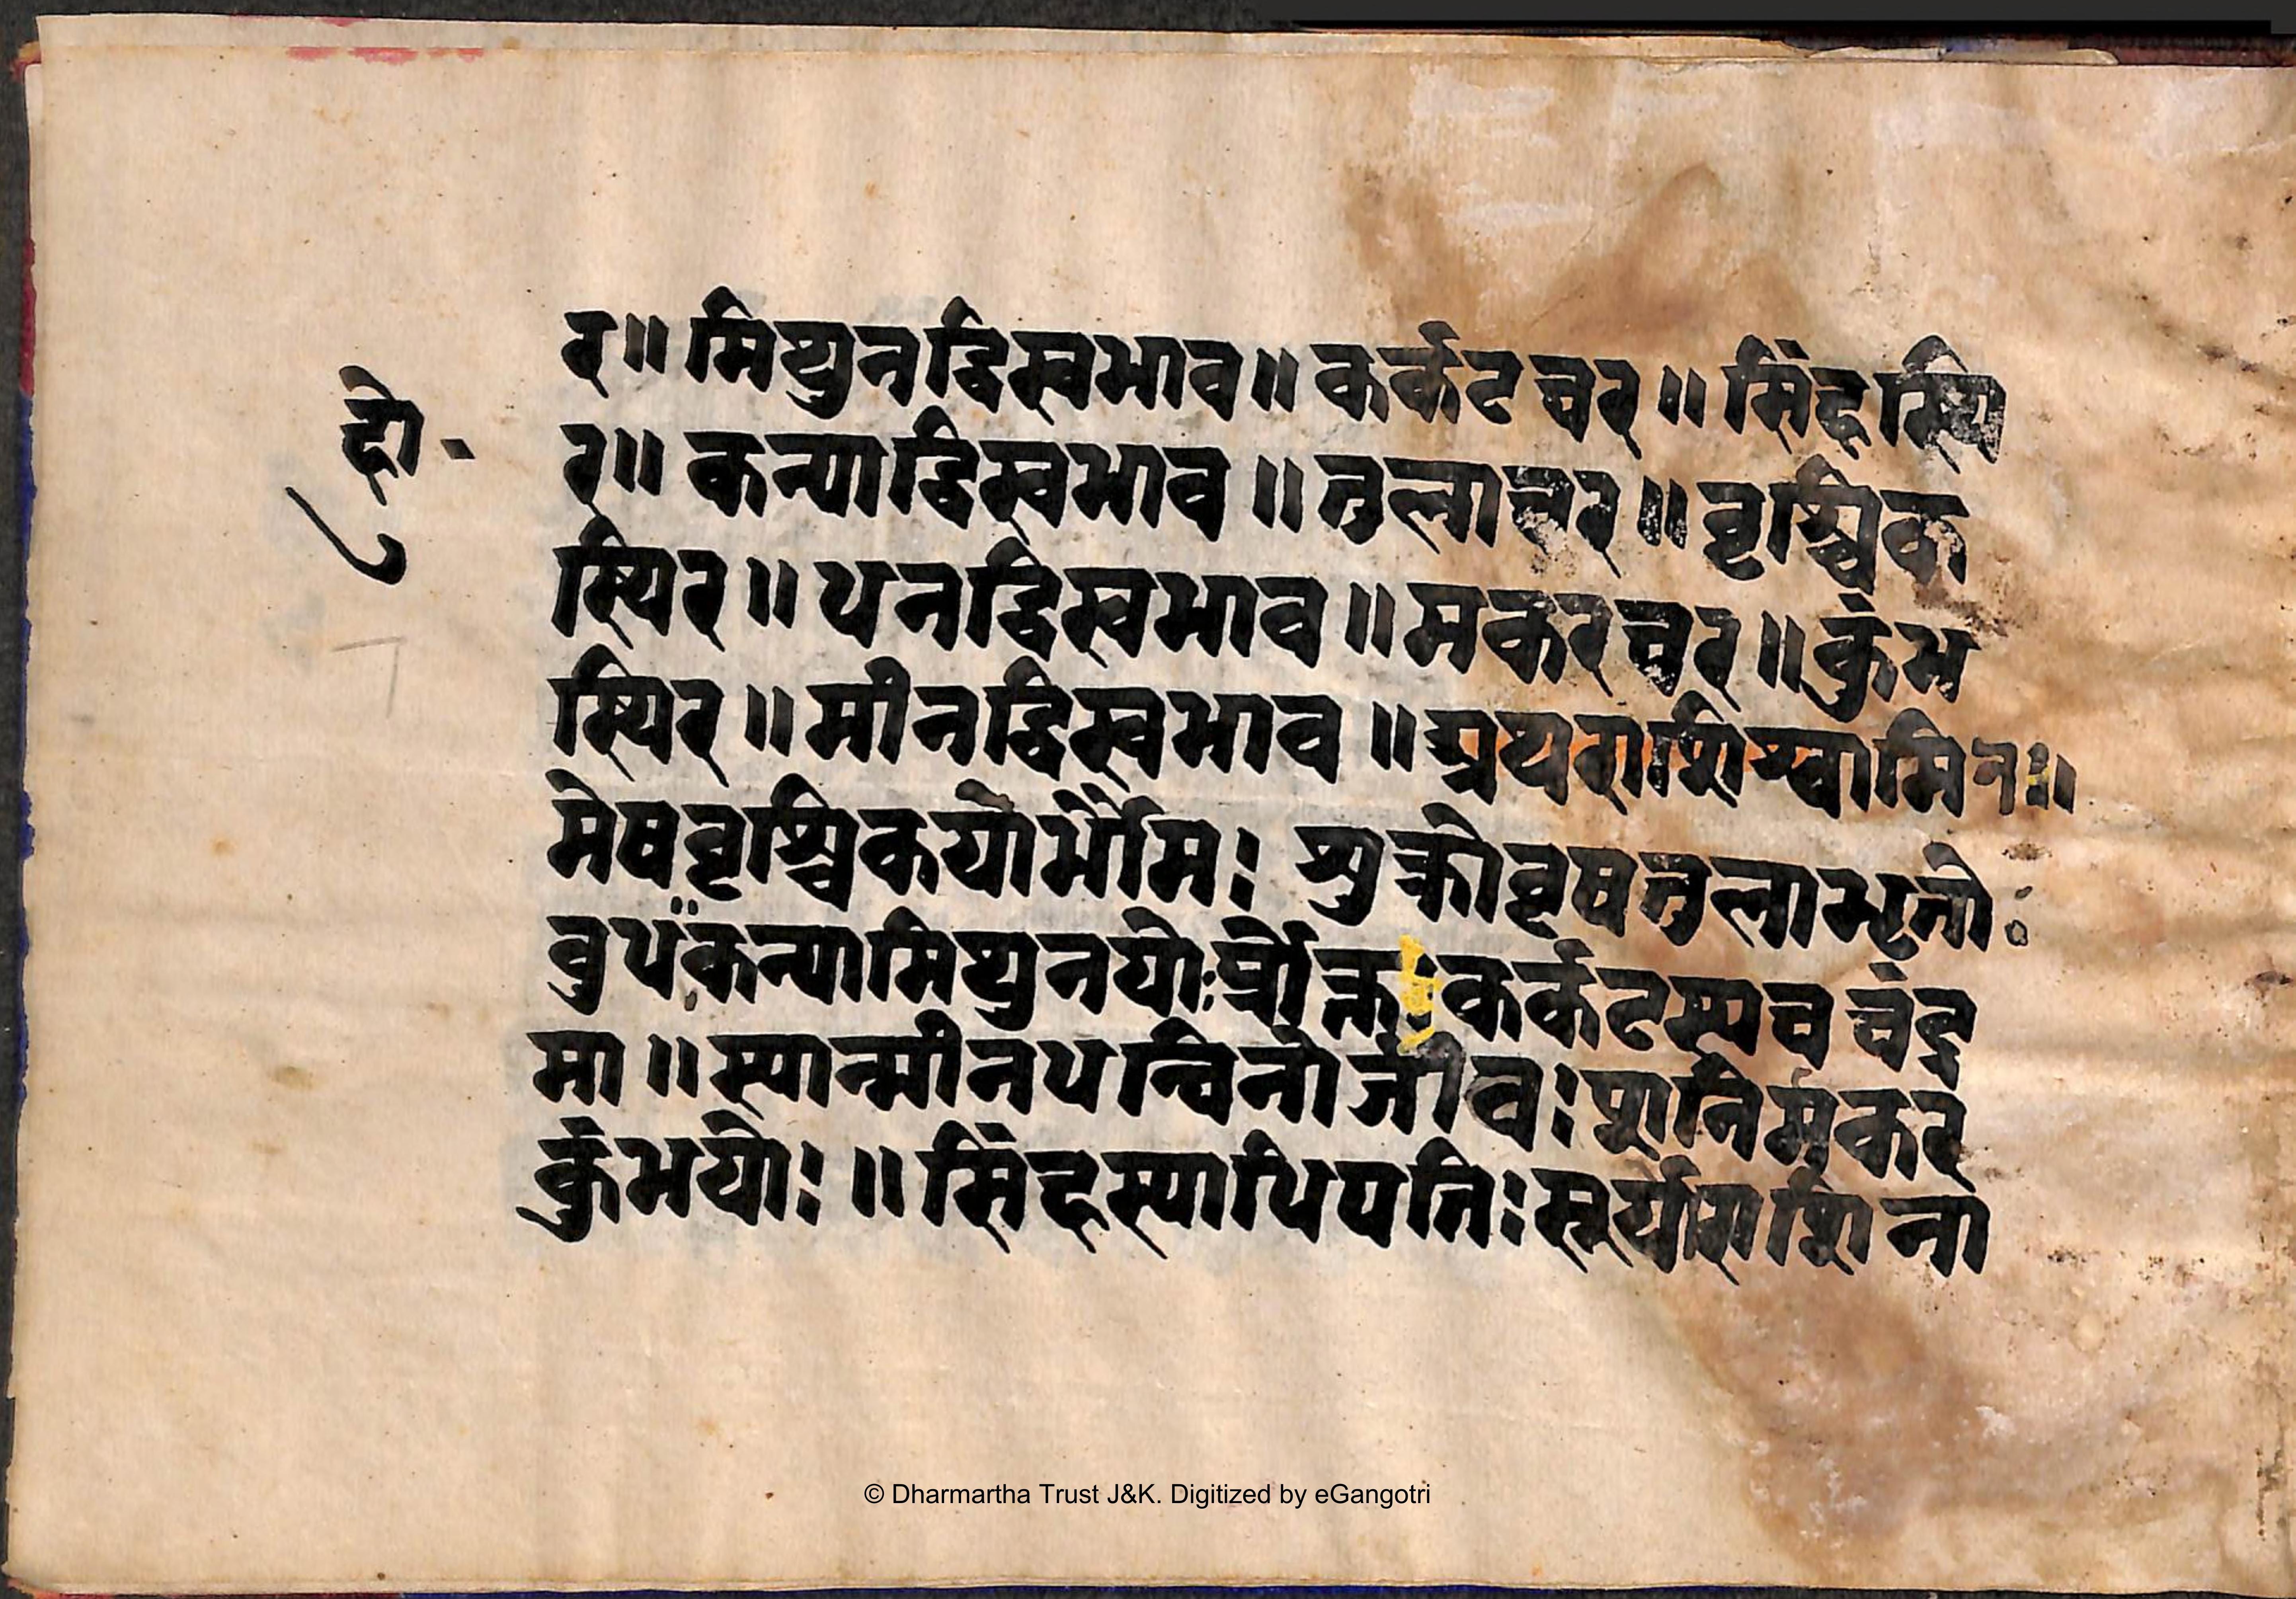 हो॰
र॥ मिथुनद्विस्वभाव॥ कर्कटचर॥ सिंहस्थि
र॥ कन्याद्विस्वभाव॥ तुलाचर॥ वृश्चिक
स्थिर॥ धनद्विस्वभाव॥ मकरचर॥ कुंभ
स्थिर॥ मीनद्विस्वभाव॥ अथराशिस्वामिनः॥
मेषवृश्चिकयोर्भौमः शुक्रोवृषतुलाभृतोः
बुधःकन्यामिथुनयोःप्रोक्तःकर्कटस्यच चंद्र
मा॥ स्यान्मीनधन्विनोर्जीवःशनिर्मकर
कुंभयोः॥ सिंहस्याधिपतिःसूर्यराशिना
© Dharmartha Trust J&K. Digitized by eGangotri